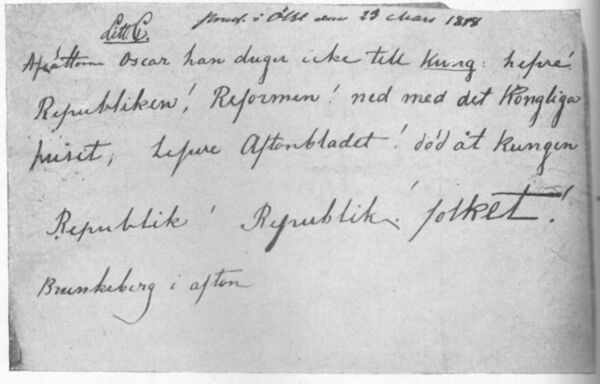 Litt. C.
i Ö den 23 Mars 1848
Afsättom Oscar han duger icke till Kung: lefve!
Republiken! Reformen! ned med det Kongliga
huset, lefve Aftonbladet! död åt kungen
Republik! Republik! folket!
Brunkeberg i afton